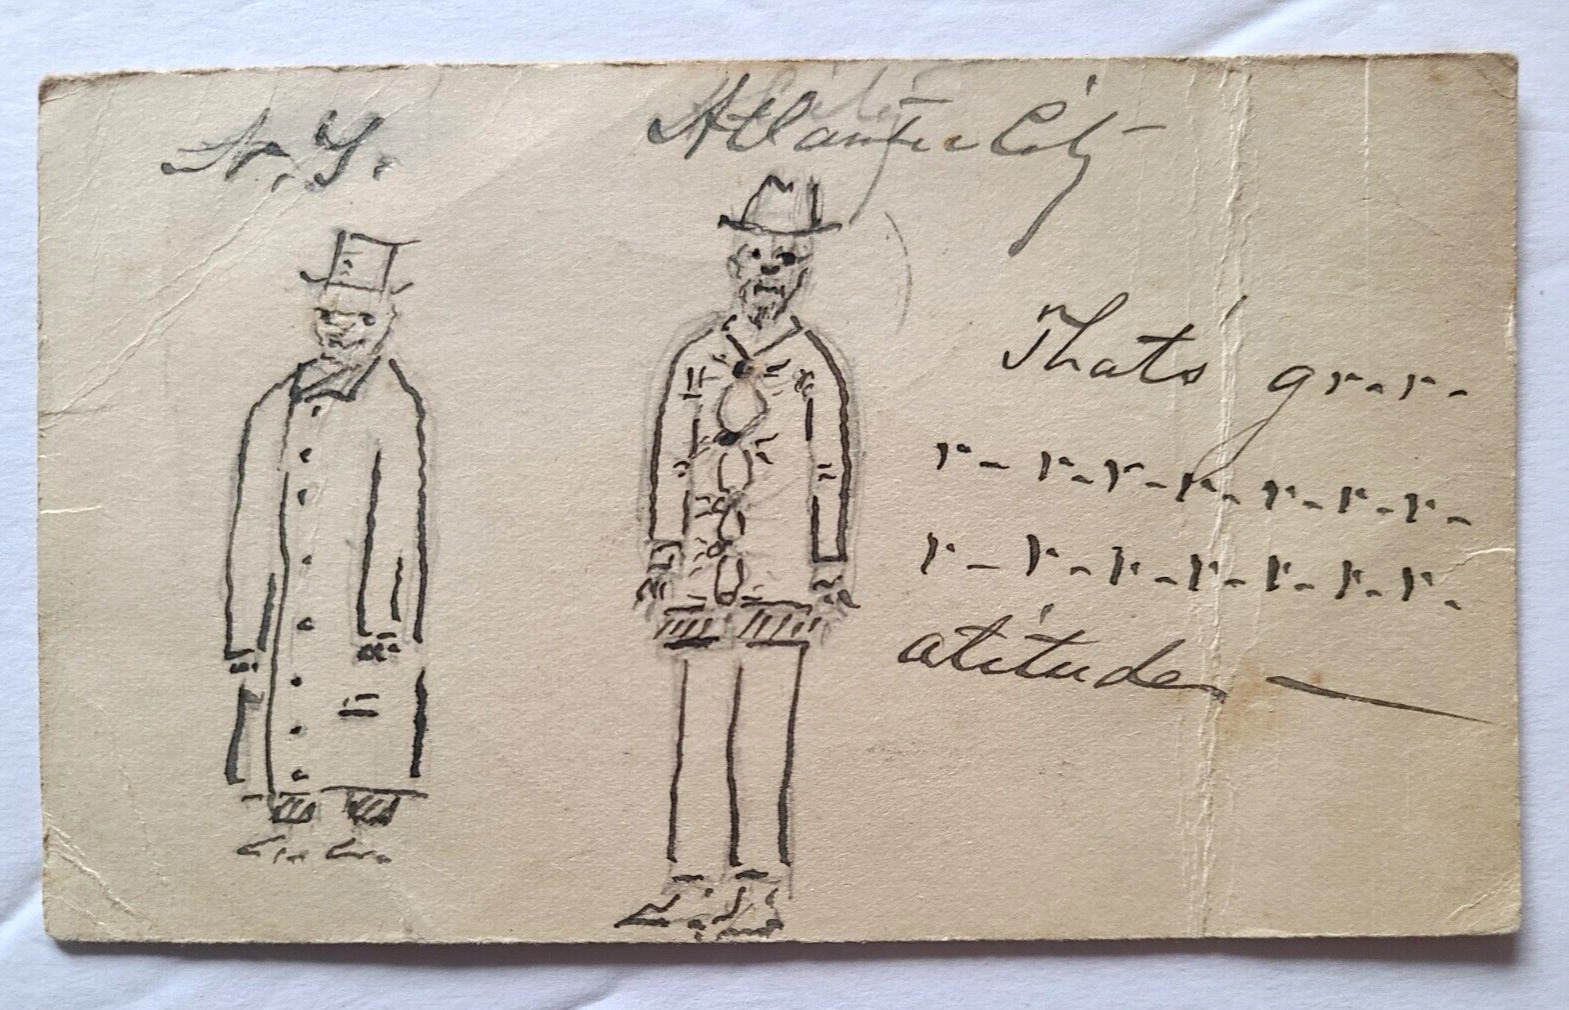 N.Y.
Atlantic City -
Thats gr-r-r-
r-r-r-r-r-r-r-
r-r-r-r-r-r-r-
atitude —